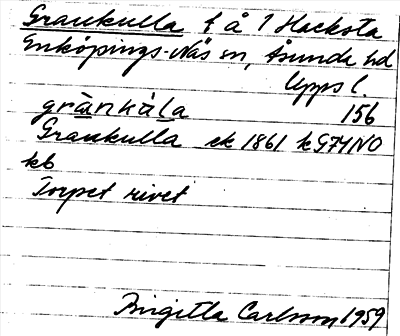 Grankulla t å 1 Hacksta
Enköpings-Näs sn, Åsunda hd
Upps l.
grànkàla 156
Grankulla ek 1861 k G74NO
kb
Torpet rivet
Birgitta Carlsson 1959